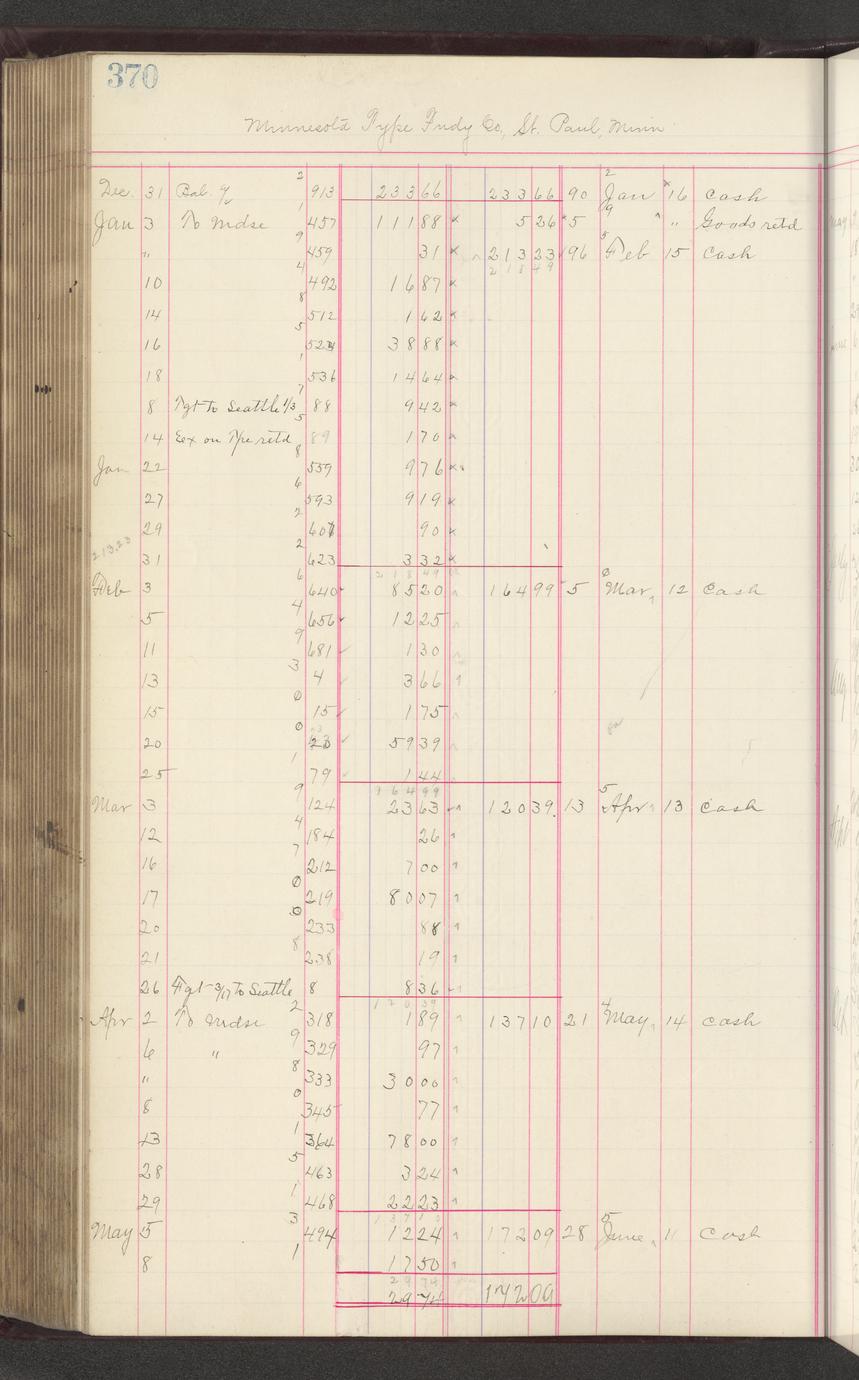 370
Minnesota Type Fndy Co, St. Paul, Minn
Dec. 31 Bal. 913 23366 23366 90 Jan 16 Cash
Jan 3 To Mdse 457 11188 526 5 " Goods retd
" 459 31 21323 96 Feb 15 Cash
21849
10 492 1687
14 512 162
16 3888
18 536 1464
8 Fgt to Seattle 1/3 88 942
14 Ex on Type retd 89 170
Jan 22 559 976
27 593 919
29 607 90
213.23
31 623 332
21849
Feb 3 640 8520 16499 5 Mar 12 Cash
5 656 1225
11 681 130
13 4 366
15 15 175
20 5939
25 79 144
16499
Mar 3 124 2363 12039 13 Apr 13 Cash
12 184 26
16 212 700
17 219 8007
20 233 88
21 238 19
26 Fgt 3/17 to Seattle 8 836
12039
Apr 2 To Mdse 318 189 13710 21 May 14 Cash
6 " 329 97
" 333 3000
8 345 77
13 364 7800
28 463 324
29 468 2223
13710
May 5 494 1224 17209 28 June 11 Cash
8 1750
2974
2974 17209